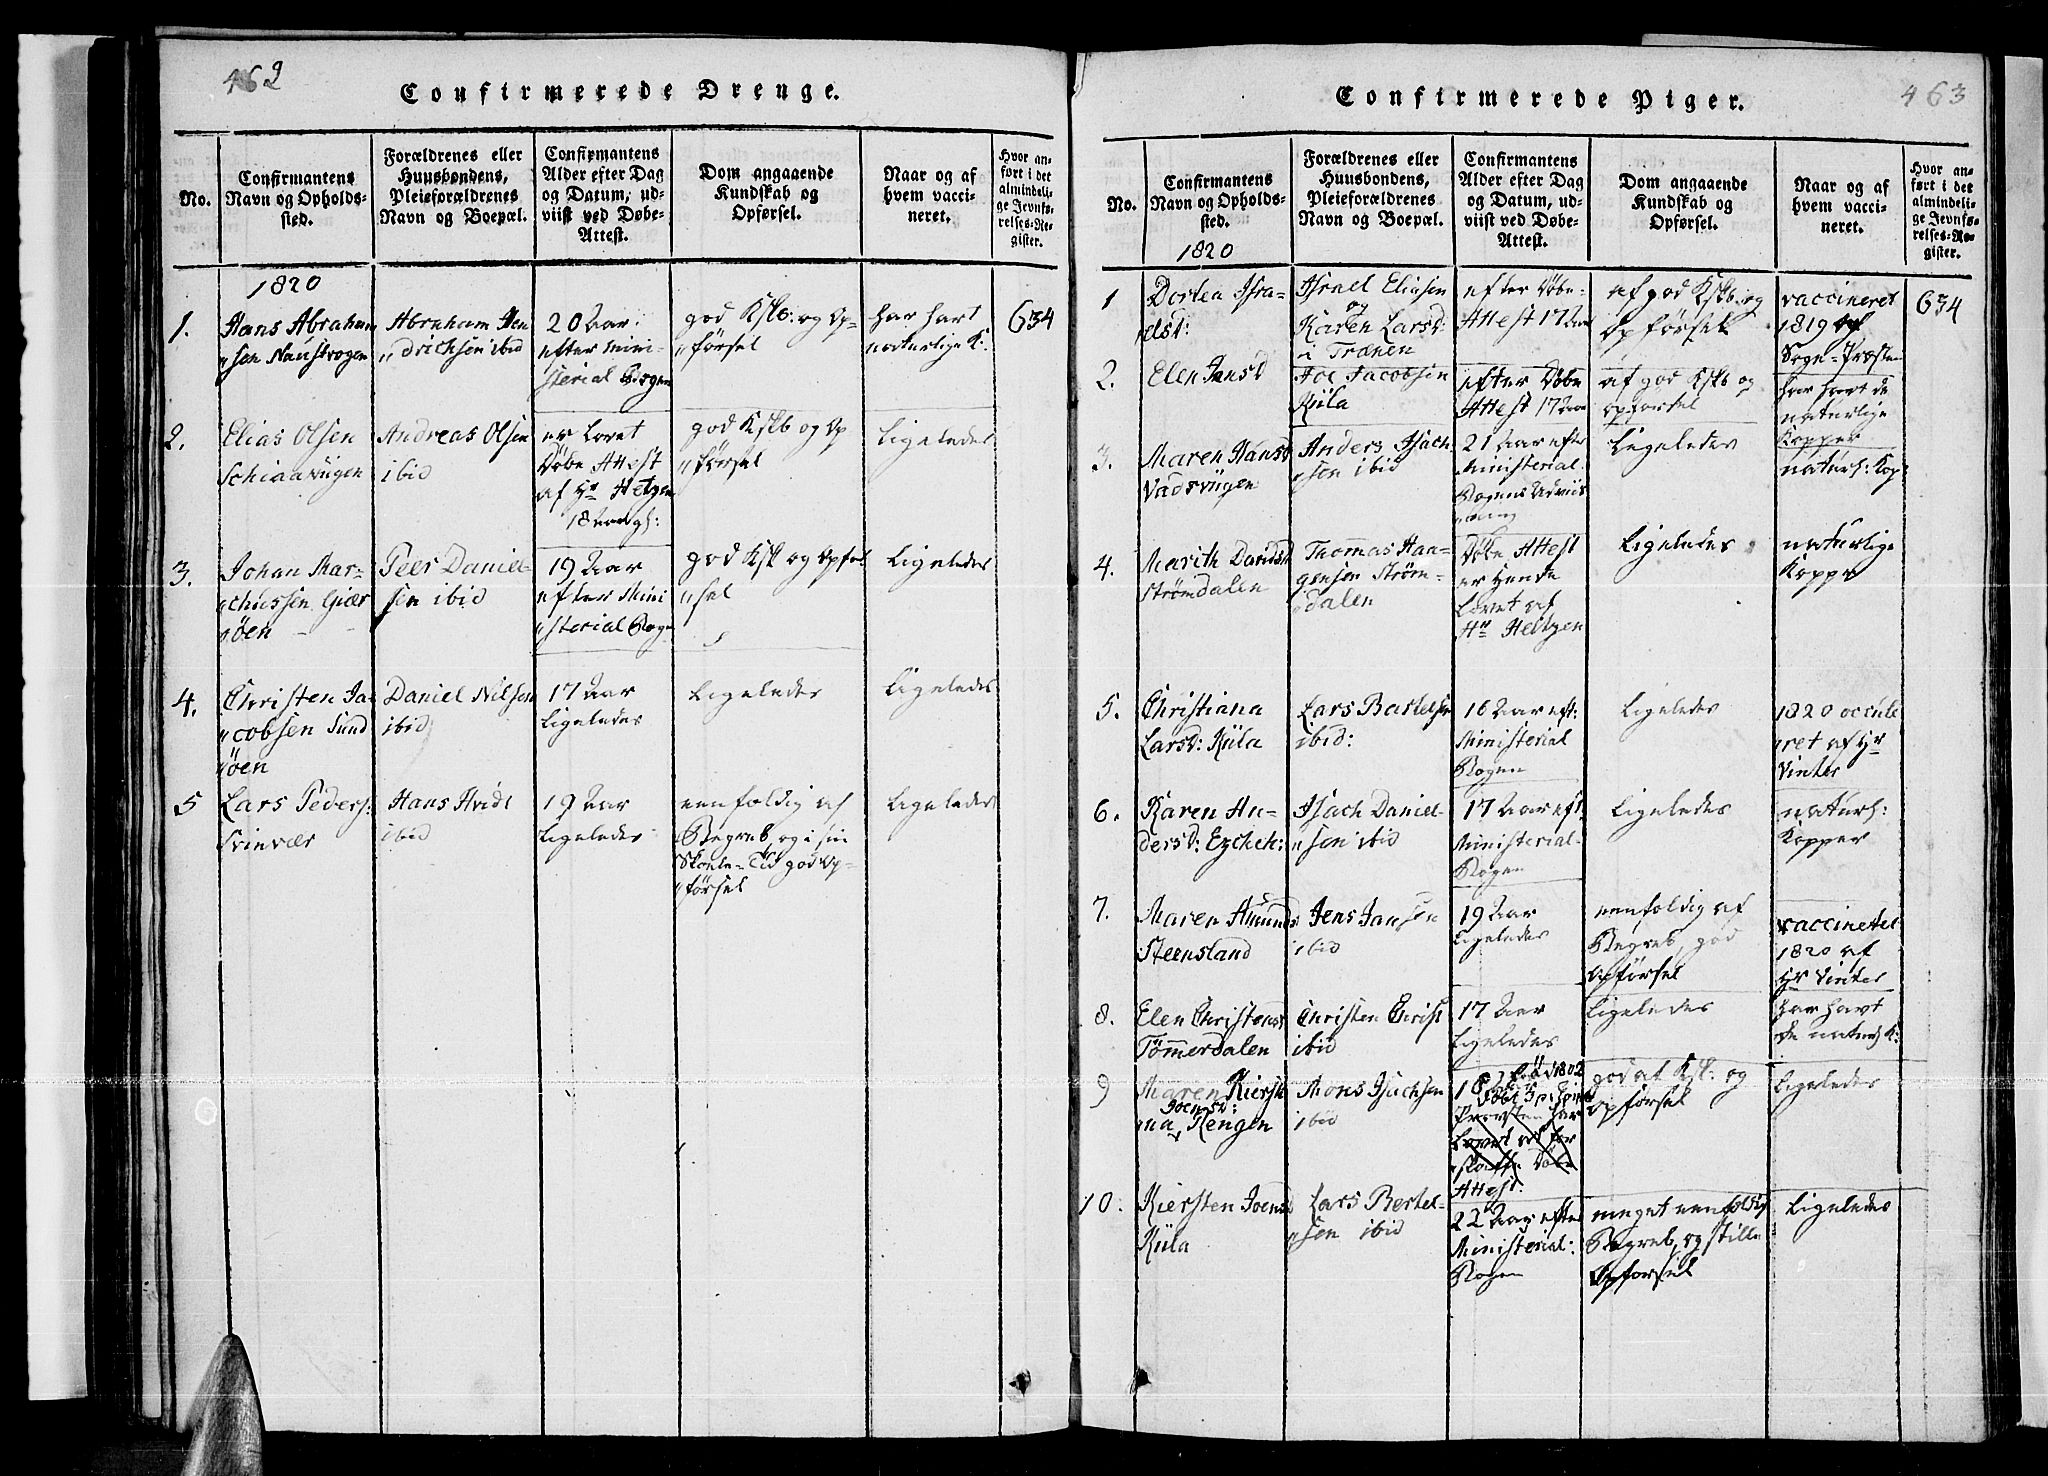 462
Confirmerede Drenge.
No.
Confirmantens
Navn og Opholds-
sted.
Forældrenes eller
Huusbondens,
Pleieforældrenes
Navn og Boepæl.
Confirmantens
Alder efter Dag
og Datum, ud-
viist ved Døbe-
Attest.
Dom angaaende
Kundskab og
Opførsel.
Naar og af
hvem vacci-
neret.
Hvor an-
ført i det
almindeli-
ge Jevnfø-
relses-Re-
gister.
1820
1.
Hans Abraham
"sen Naustvogen
Abraham Hen
"drichsen ibid
20 Aar.
efter Mini-
sterial Bogen
god Kskb: og Op-
"førsel
har havt
naturlige K:
634
2.
Elias Olsen
Schiaavigen
Andreas Olsen
ibid
er Lovet
Døbe Attest
af Hr Heltzen
18 Aar gl:
god Kskb og Op
"førsel
Ligeledes
3.
Johan Mar-
"chussen Giær
"øen
Peer Daniel-
sen ibid
19 Aar
efter Mini
"sterial Bogn
god Ksk og Opfør
"sel
Ligeledes
4.
Christen Ja
"cobsen Sund
"øen
Daniel Nilsen
ibid
17 Aar
Ligeledes
Ligeledes
Ligeledes
5
Lars Peders:
Svinvær
Hans Hvid
ibid
19 Aar
Ligeledes
eenfoldig af
Begreb, og i sin
Skoele-Tid god Op-
"førsel
Ligeledes
Confirmerede Piger.
463
No.
Confirmantens
Navn og Opholds-
sted.
1820
Forældrenes eller
Huusbondens,
Pleieforældrenes
Navn og Boepæl.
Confirmantens
Alder efter Dag
og Datum, ud-
viist ved Døbe-
Attest.
Dom angaaende
Kundskab og
Opførsel.
Naar og af
hvem vacci-
neret.
Hvor an-
ført i det
almindeli-
ge Jevnfø-
relses-Re-
gister.
1
Dortea Isra-
elsd:
Israel Eliasen
og
Karen Larsd:
i Trænen
efter Døbe-
Attest 17 Aar
af god Kskb: og
Opførsel
vaccineret
1819 af
Sogne-Præsten
634
2.
Elen Jansd
Joe Jacobsen
Kiila
efter Døbe
Attest 17 Aar
af god Kskb og
opførsel
har havt de
naturlige
Kopper
3.
Maren Hansd
Vadsviigen
Anders Isach
"sen ibid
21 Aar efter
Ministerial.
Bogens Udviis
"ning
Ligeledes
naturl: Kop
4.
Marith Davidsd
Strømdalen
Thomas Han-
gensen Strøm-
dalen
Døbe Attest
er Hende
Lovet af
Hr Heltzen
Ligeledes
naturlige
Kopper
5.
Christiana
Larsd: Kiila
Lars Bartelsen
ibid:
16 Aar eft:
Ministerial
Bogen
Ligeledes
1820 occule
"ret af Hr
Vinter
6.
Karen An-
dersd:
Isach Daniel-
"sen ibid
17 Aar eft
Ministerial-
Bogen
Ligeledes
naturl:
Kopper
7.
Maren Amunds
Steensland
Jens Jansen
ibid
19 Aar
Ligeledes
eenfoldig af
Begreb, god
opførsel
vaccineret
1820 af
Hr Vinter
8.
Elen Christensd
Tømmerdalen
Christen Christ
ibid
17 Aar
Ligeledes
Ligeledes
har havt
de naturl K:
9
Maren Kiersti
Joensd:
"na, Rengen
Mons Isachsen
ibid
18
fød 1802
Præsten har
Lovet at for
"skaffe Døbe
Attest.
god af Ksk: og
opførsel
Ligeledes
10.
Kiersten Joensd
Kiila
Lars Bertel-
"sen ibid
22 Aar efter
Ministerial:
Bogen
meget eenfoldig
Begreb, og stille
Opførsel
Ligeledes